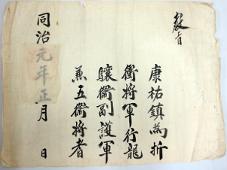 教旨
康祐鎮為折
衝將軍行龍
驤衛副護軍
兼五衛將者
同治元年正月 日